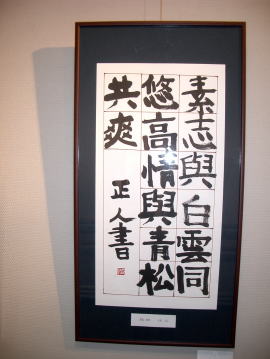 素志與白雲同
悠高情與青松
共爽
正人書